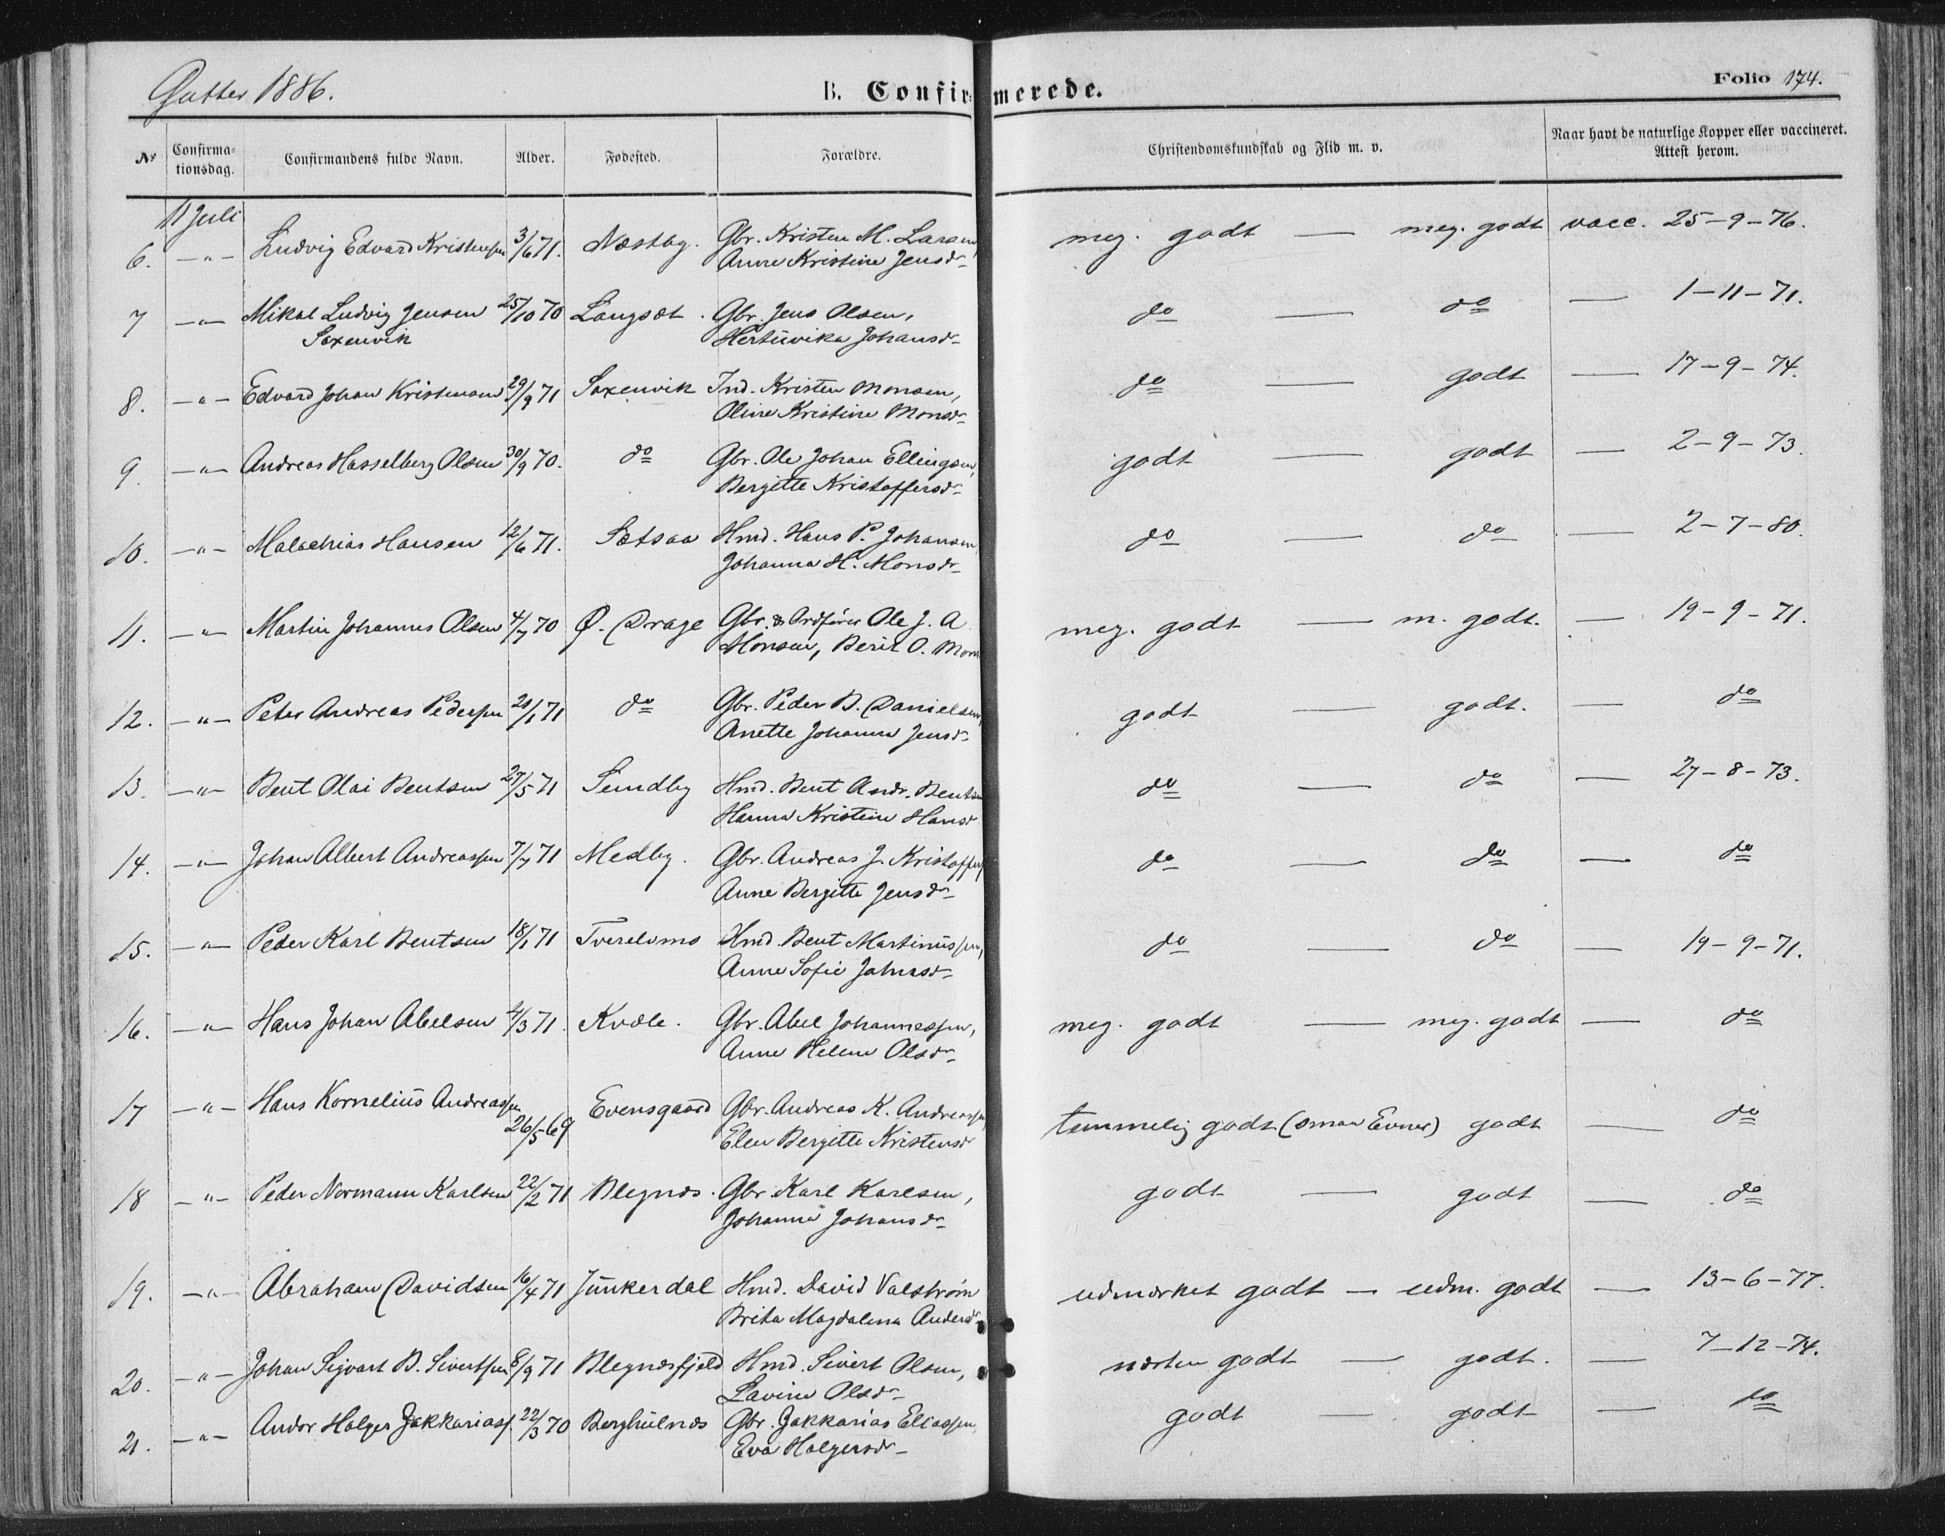 Gutter 1886.
B. Confirmerede.
Folio 174.
No Confirmationsdag. Confirmandens fulde Navn. Alder. Fødested. Forældre. Christendomskundskab og Flid m. v. Naar havt de naturlige Kopper eller vaccineret. Attest herom.
11 Juli
6. —"— Ludvig Edvard Kristensen 3/6 71. Næstby. Gbr. Kristen M. Larsen, meg. godt — meg. godt vacc. 25-9-76.
Anne Kristine Jensdr
7 —"— Mikal Ludvig Jensen 25/10 70 Langset. Gbr. Jens Olsen, do — do — 1-11-71.
Saxenvik Hertuvika Johansdr
8. —"— Edvard Johan Kristensen 29/9 71 Saxenvik Ind. Kristen Monsen, do — godt — 17-9-74.
Oline Kristine Monsdr
9. —"— Andreas Hasselberg Olsen 30/9 70. do Gbr. Ole Johan Ellingsen, godt — godt — 2-9-73.
Bergitte Kristoffersdr
10. —"— Malachias Hansen 12/6 71. Sætsaa Hmd. Hans P. Johansen, do — do — 2-7-80.
Johanna H. Monsdr
11. —"— Martin Johannes Olsen 4/7 70 Ø. Drage Gbr. & Ordfører Ole J. A. meg. godt — m. godt. — 19-9-71.
Monsen, Berit O. Mons
12. —"— Peter Andreas Pedersen 21/1 71 do Gbr. Peder B. Danielsen, godt — godt. — do
Anette Johanna Jensdr
13. —"— Bent Olai Bentsen 27/5 71 Sundby Hmd. Bent Andr. Bentsen do — do — 27-8-73.
Hanna Kristine Hansd
14. —"— Johan Albert Andreassen 7/7 71 Medby. Gbr. Andreas J. Kristoffers do — do — do
Anne Bergitte Jensdr
15. —"— Peder Karl Bentsen 18/1 71 Tverelvmo Hmd. Bent Martinussen, do — do — 19-9-71.
Anne Sofie Johnsdr
16. —"— Hans Johan Abelsen 4/3 71. Kvæle. Gbr. Abel Johannessen, meg. godt — meg. godt — do
Anne Helene Olsdr
17 —"— Hans Kornelius Andreassen 26/5 69 Evensgaard Gbr. Andreas K. Andreassen, temmelig godt (smaa Evner) godt — do
Elen Bergitte Kristensdr
18 —"— Peder Normann Karlsen 22/2 71 Blegnæs. Gbr. Karl Karlsen, godt — godt — do
Johanna Johansdr
19. —"— Abraham Davidsen 16/4 71 Junkerdal Hmd. David Valstrøm udmærket godt — udm. godt — 13-6-77.
Brita Magdalena Andersdr
20. —"— Johan Sigvart B. Sivertsen 8/9 71 Blegnæsfjeld Hmd. Sivert Olsen, næsten godt — godt. — 7-12-74.
Lavine Olsdr
21. —"— Andor Holger Zakkariass. 22/3 70 Berghulnæs Gbr. Zakkarias Eliassen, godt — godt — do
Eva Holgersdr